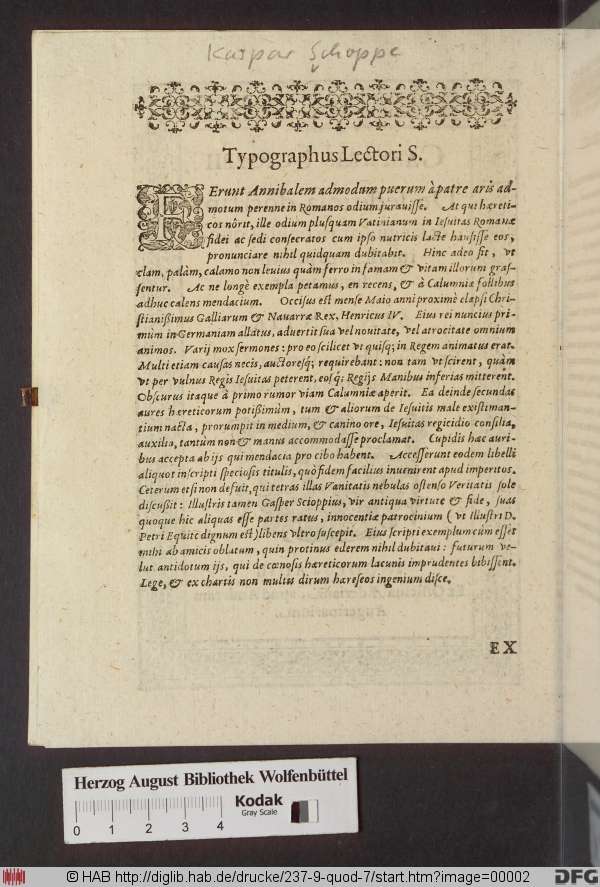 Kaspar Schoppe
Typographus Lectori S.
FErunt Annibalem admodum puerum à patre aris ad-
motum perenne in Romanos odium jurauisse. At qui hæreti-
cos nôrit, ille odium plusquam Vatinianum in Iesuitas Romanæ
fidei ac sedi consecratos cum ipso nutricis lacte hausisse eos,
pronunciare nihil quidquam dubitabit. Hinc adeo fit, vt
clam, palàm, calamo non leuius quàm ferro in famam & vitam illorum gras-
sentur. Ac ne longè exempla petamus, en recens, & à Calumniæ follibus
adhuc calens mendacium. Occisus est mense Maio anni proximè elapsi Chri-
stianißimus Galliarum & Nauarræ Rex, Henricus IV. Eius rei nuncius pri-
mùm in Germaniam allatus, aduertit sua vel nouitate, vel atrocitate omnium
animos. Varij mox sermones: pro eo scilicet vt quisq; in Regem animatus erat.
Multi etiam causas necis, auctoresq; requirebant: non tam vt scirent, quàm
vt per vulnus Regis Iesuitas peterent, eosq; Regijs Manibus inferias mitterent.
Obscurus itaque à primo rumor viam Calumniæ aperit. Ea deinde secundas
aures hæreticorum potißimùm, tum & aliorum de Iesuitis malè existiman-
tium nacta, prorumpit in medium, & canino ore, Iesuitas regicidio consilia,
auxilia, tantùm non & manus accommodasse proclamat. Cupidis hac auri-
bus accepta ab ijs qui mendacia pro cibo habent. Accesserunt eodem libelli
aliquot inscripti speciosis titulis, quò fidem facilius inuenirent apud imperitos.
Ceterum etsi non defuit, qui tetras illas Vanitatis nebulas ostenso Veritatis sole
discussit: Illustris tamen Gasper Scioppius, vir antiqua virtute & fide, suas
quoque hic aliquas esse partes ratus, innocentiæ patrocinium (vt Illustri D.
Petri Equite dignum est) libens vltro suscepit. Eius scripti exemplum cùm esset
mihi ab amicis oblatum, quin protinus ederem nihil dubitaui: futurum ve-
lut antidotum ijs, qui de cœnosis hæreticorum lacunis imprudentes bibissent.
Lege, & ex chartis non multis dirum hæreseos ingenium disce.
EX
Herzog August Bibliothek Wolfenbüttel
Kodak
Gray Scale
0 1 2 3 4
© HAB http://diglib.hab.de/drucke/237-9-quod-7/start.htm?image=00002
DFG